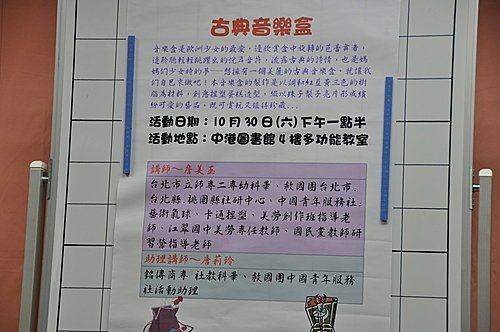 古典音樂盒
音樂盒是歐洲少女的最愛，邊欣賞盒中旋轉的芭蕾舞者，
邊聆聽輕輕跳躍出的優美音符，流露古典的詩情，也是媽
媽們少女時的夢─想擁有一個美麗的古典音樂盒，就讓我
們自己來做吧！本音樂盒的製作是以調和紅黃三色的樹
脂為材料，創意捏塑蛋糕造型，綴以珠子梨子亮片形成繽
紛可愛的藝品，既可賞玩又值得珍藏...
活動日期：10月30日(六)下午一點半
活動地點：中港圖書館4樓多功能教室
講師～唐美玉
台北市立師專二專幼科畢、救國團台北市.
台北縣.桃園縣社研中心、中國青年服務社:
藝術氣球、卡通捏塑、美勞創作班指導老
師、江翠國中美勞專任教師、國民黨教師研
習營指導老師
助理講師～唐莉玲
銘傳商專 社教科畢、救國團中國青年服務
社活動助理